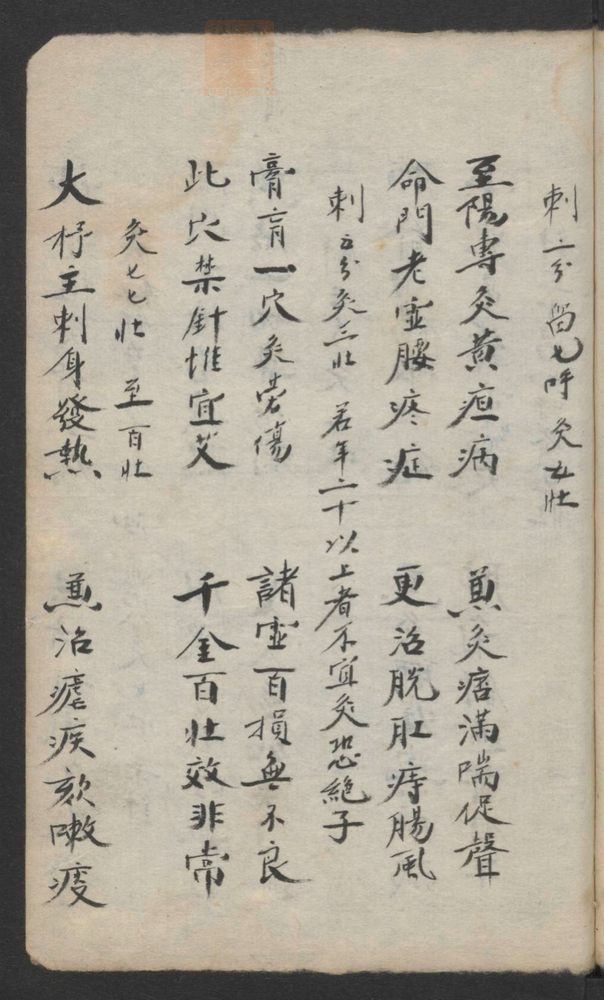 刺三分留七呼灸五壯
至陽專灸黃疸病 兼灸痞滿喘促聲
命門老虛腰疼症 更治脫肛痔腸風
刺五分灸三壯 若年二十以上者不宜灸恐絕子
膏肓一穴灸勞傷 諸虛百損無不良
此穴禁針惟宜艾 千金百壯效非常
灸七七壯 至百壯
大杼主刺身發熱 兼治瘧疾欬嗽痰